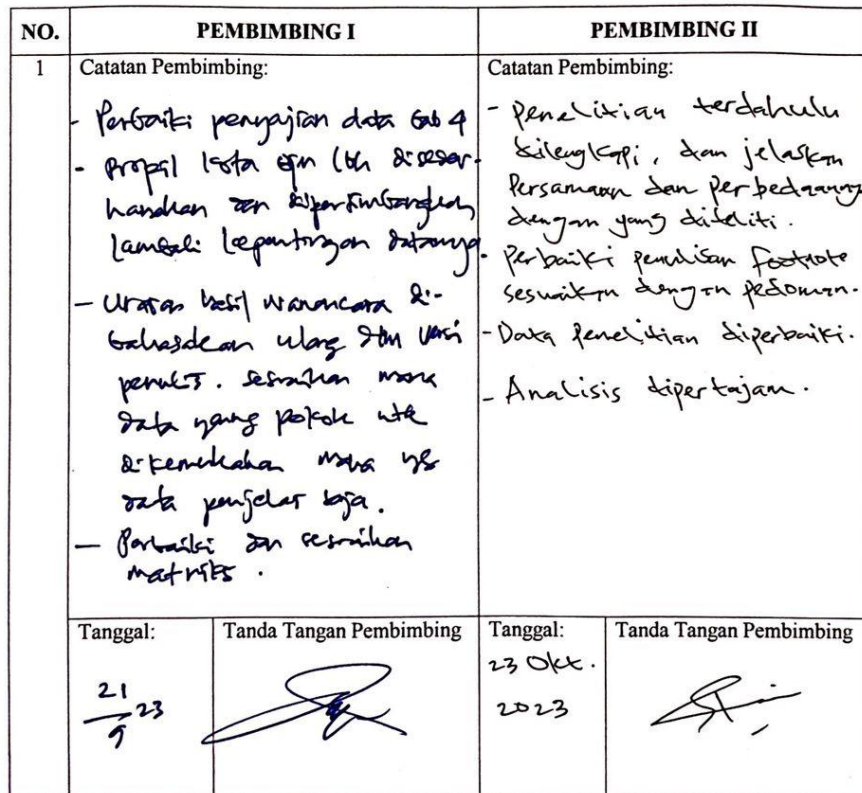 NO.
PEMBIMBING I
PEMBIMBING II
1
Catatan Pembimbing:
- Perbaiki penyajian data bab 4
- Propil kota bjm lbh diseder-
hanakan dan dipertimbangkan
kembali kepentingan datanya
- Uraian hasil wawancara di-
bahasakan ulang dlm versi
penulis. sesuaikan mana
data yang pokok utk
dikemukakan mana yg
data penjelas saja.
- Perbaiki dan sesuaikan
matriks.
Catatan Pembimbing:
- Penelitian terdahulu
dilengkapi, dan jelaskan
Persamaan dan perbedaannya
dengan yang diteliti.
- Perbaiki penulisan footnote
sesuaikan dengan pedoman.
- Data penelitian diperbaiki.
- Analisis dipertajam.
Tanggal:
21/9 23
Tanda Tangan Pembimbing
Tanggal:
23 Okt.
2023
Tanda Tangan Pembimbing